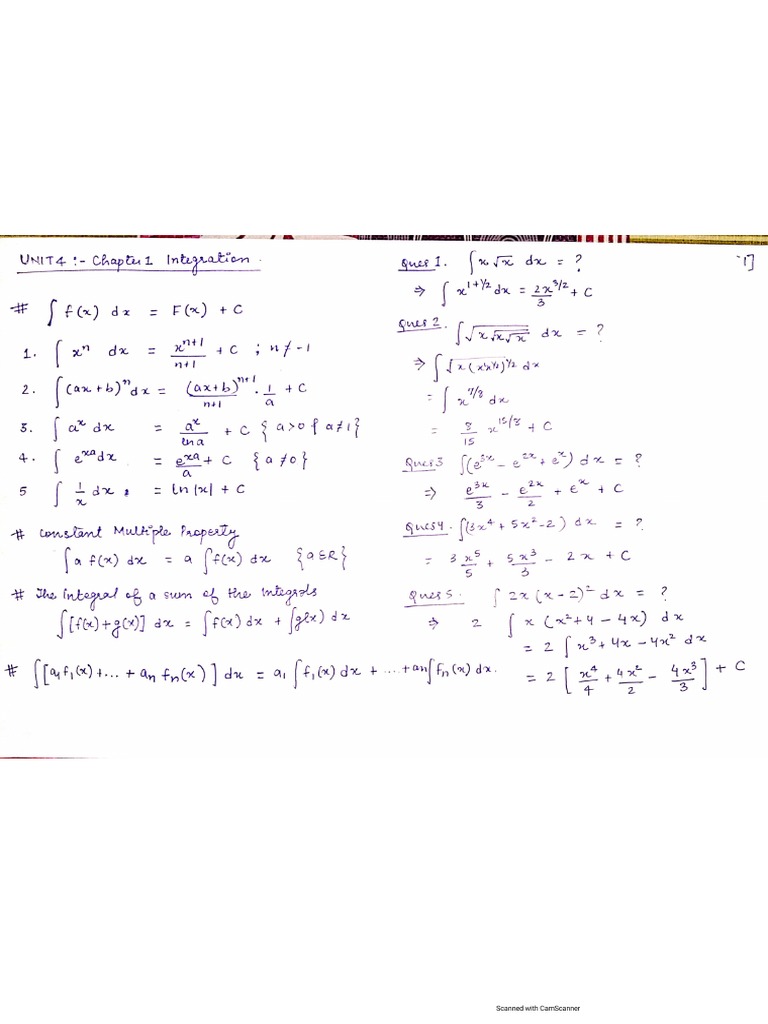 UNIT 4 :- Chapter 1 Integration.
# ∫ f(x) dx = F(x) + C
1. ∫ xⁿ dx = xⁿ⁺¹/n+1 + C ; n ≠ -1
2. ∫ (ax+b)ⁿ dx = (ax+b)ⁿ⁺¹/n+1 · 1/a + C
3. ∫ aˣ dx = aˣ/ln a + C { a>0 & a≠1}
4. ∫ e^xa dx = e^xa/a + C {a≠0}
5 ∫ 1/x dx = ln|x| + C
# Constant Multiple Property
∫ a f(x) dx = a ∫ f(x) dx {a∈R}
# The Integral of a sum of the Integrals
∫ [f(x)+g(x)] dx = ∫ f(x) dx + ∫ g(x) dx
# ∫ [a₁f₁(x)+...+aₙ fₙ(x)] dx = a₁ ∫ f₁(x) dx + ...+aₙ∫ fₙ(x) dx.
Ques 1. ∫ x √x dx = ?
⇒ ∫ x^(1+1/2) dx = 2x^3/2 / 3 + C
Ques 2. ∫ √(x √(x√x)) dx = ?
⇒ ∫ √(x (x x^1/2)^1/2) dx
= ∫ x^7/8 dx
= 8/15 x^15/8 + C
Ques 3 ∫ (e^3x - e^2x + e^x) dx = ?
⇒ e^3x/3 - e^2x/2 + e^x + C
Ques 4. ∫ (3x⁴ + 5x² - 2) dx = ?
= 3 x⁵/5 + 5x³/3 - 2x + C
Ques 5. ∫ 2x (x-2)² dx = ?
⇒ 2 ∫ x (x² + 4 - 4x) dx
= 2 ∫ x³ + 4x - 4x² dx
= 2 [ x⁴/4 + 4x²/2 - 4x³/3 ] + C
1]
Scanned with CamScanner